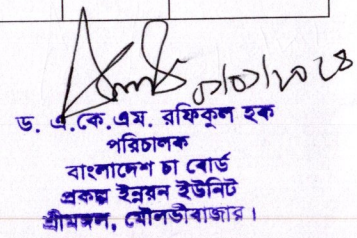 ০১/০১/২০২৪
ড. এ.কে.এম. রফিকুল হক
পরিচালক
বাংলাদেশ চা বোর্ড
প্রকল্প উন্নয়ন ইউনিট
শ্রীমঙ্গল, মৌলভীবাজার।